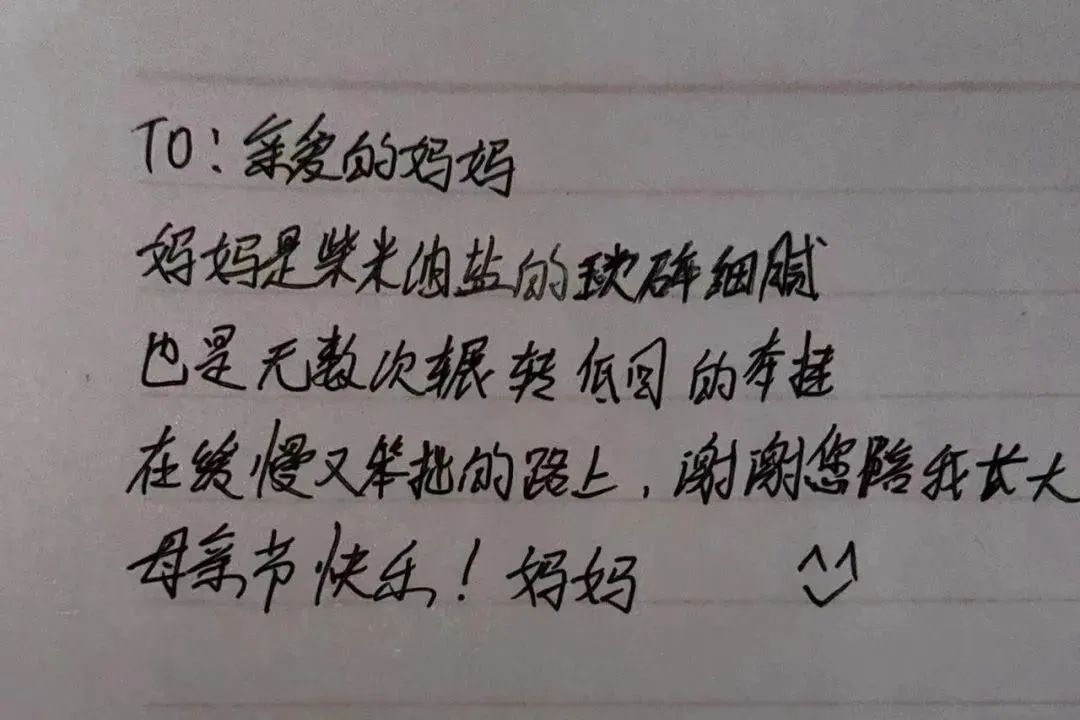 TO：亲爱的妈妈
妈妈是柴米油盐的琐碎细腻
也是无数次辗转低回的牵挂
在缓慢又笨拙的路上，谢谢您陪我长大
母亲节快乐！妈妈